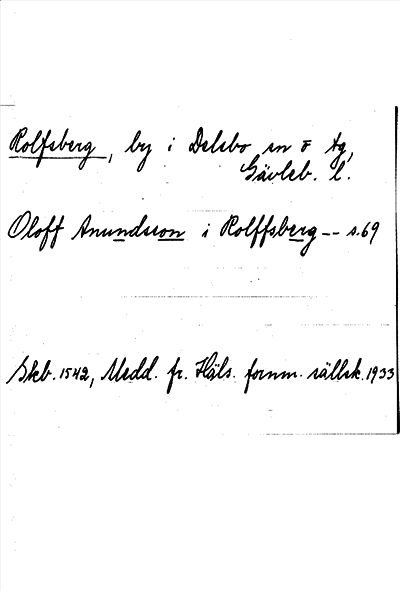 Rolfsberg, by i Delsbo sn o tg,
Gävleb. l.
Oloff Anundsson i Rolffsberg -- s.69
Skb. 1542, Medd. fr. Häls. fornm. sällsk. 1933